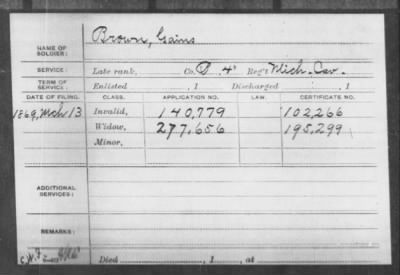 Brown, Gains
NAME OF SOLDIER:
SERVICE: Late rank, Co. D. 4" Reg't Mich. Cav.
TERM OF SERVICE: Enlisted , 1 Discharged , 1
DATE OF FILING. CLASS. APPLICATION NO. LAW. CERTIFICATE NO.
1869, Mch 13 Invalid, 140,779 102,266
Widow, 277,656 195,299
Minor,
ADDITIONAL SERVICES:
REMARKS:
Died , 1 , at